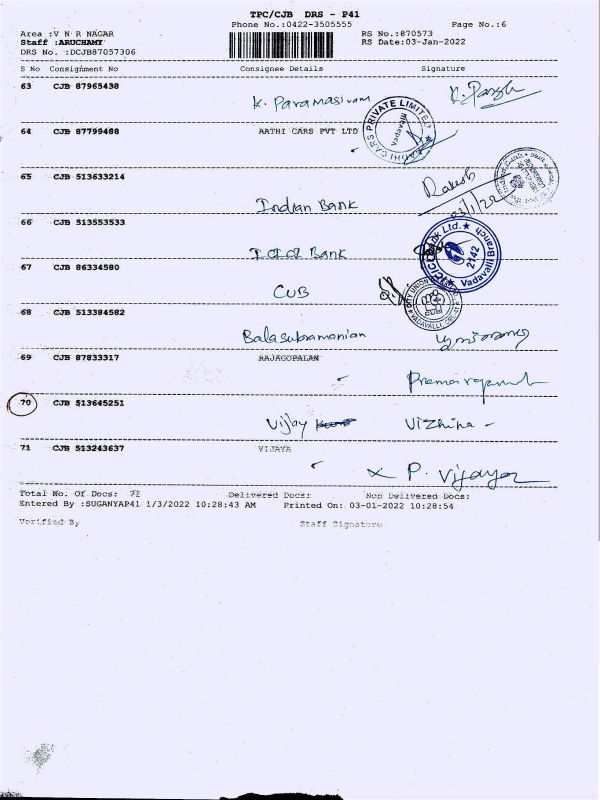 TPC/CJB DRS - P41
Phone No.:0422-3505555 Page No.:6
Area :V N R NAGAR RS No.:870573
Staff :ARUCHAMY RS Date:03-Jan-2022
DRS No. :DCJB87057306
S No Consignment No Consignee Details Signature
63 CJB 87965438
K. Paramasivam
64 CJB 87799488 AATHI CARS PVT LTD
AATHI CARS PRIVATE LIMITED
Vadavalli
65 CJB 513633214
Indian Bank Rakesh
03/1/22
66 CJB 513553533
ICICI Bank
ICICI Bank Ltd. Vadavalli Branch
2142
67 CJB 86334580
CUB
CITY UNION
VADAVALLI
68 CJB 513384582
Balasubramanian
69 CJB 87833317 RAJAGOPALAN
70 CJB 513645251
Vijay
71 CJB 513243637 VIJAYA
X P. Vijaya
Total No. Of Docs: 71 Delivered Docs: Non Delivered Docs:
Entered By :SUGANYAP41 1/3/2022 10:28:43 AM Printed On: 03-01-2022 10:28:54
Verified By Staff Signature